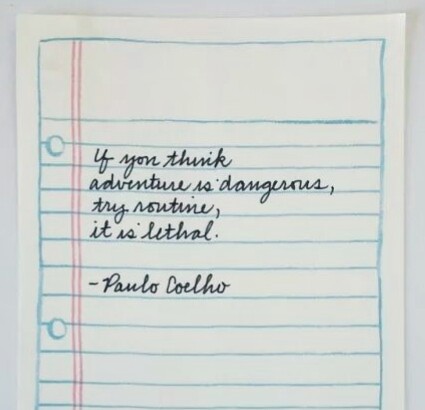 If you think
adventure is dangerous,
try routine,
it is lethal.
-Paulo Coelho